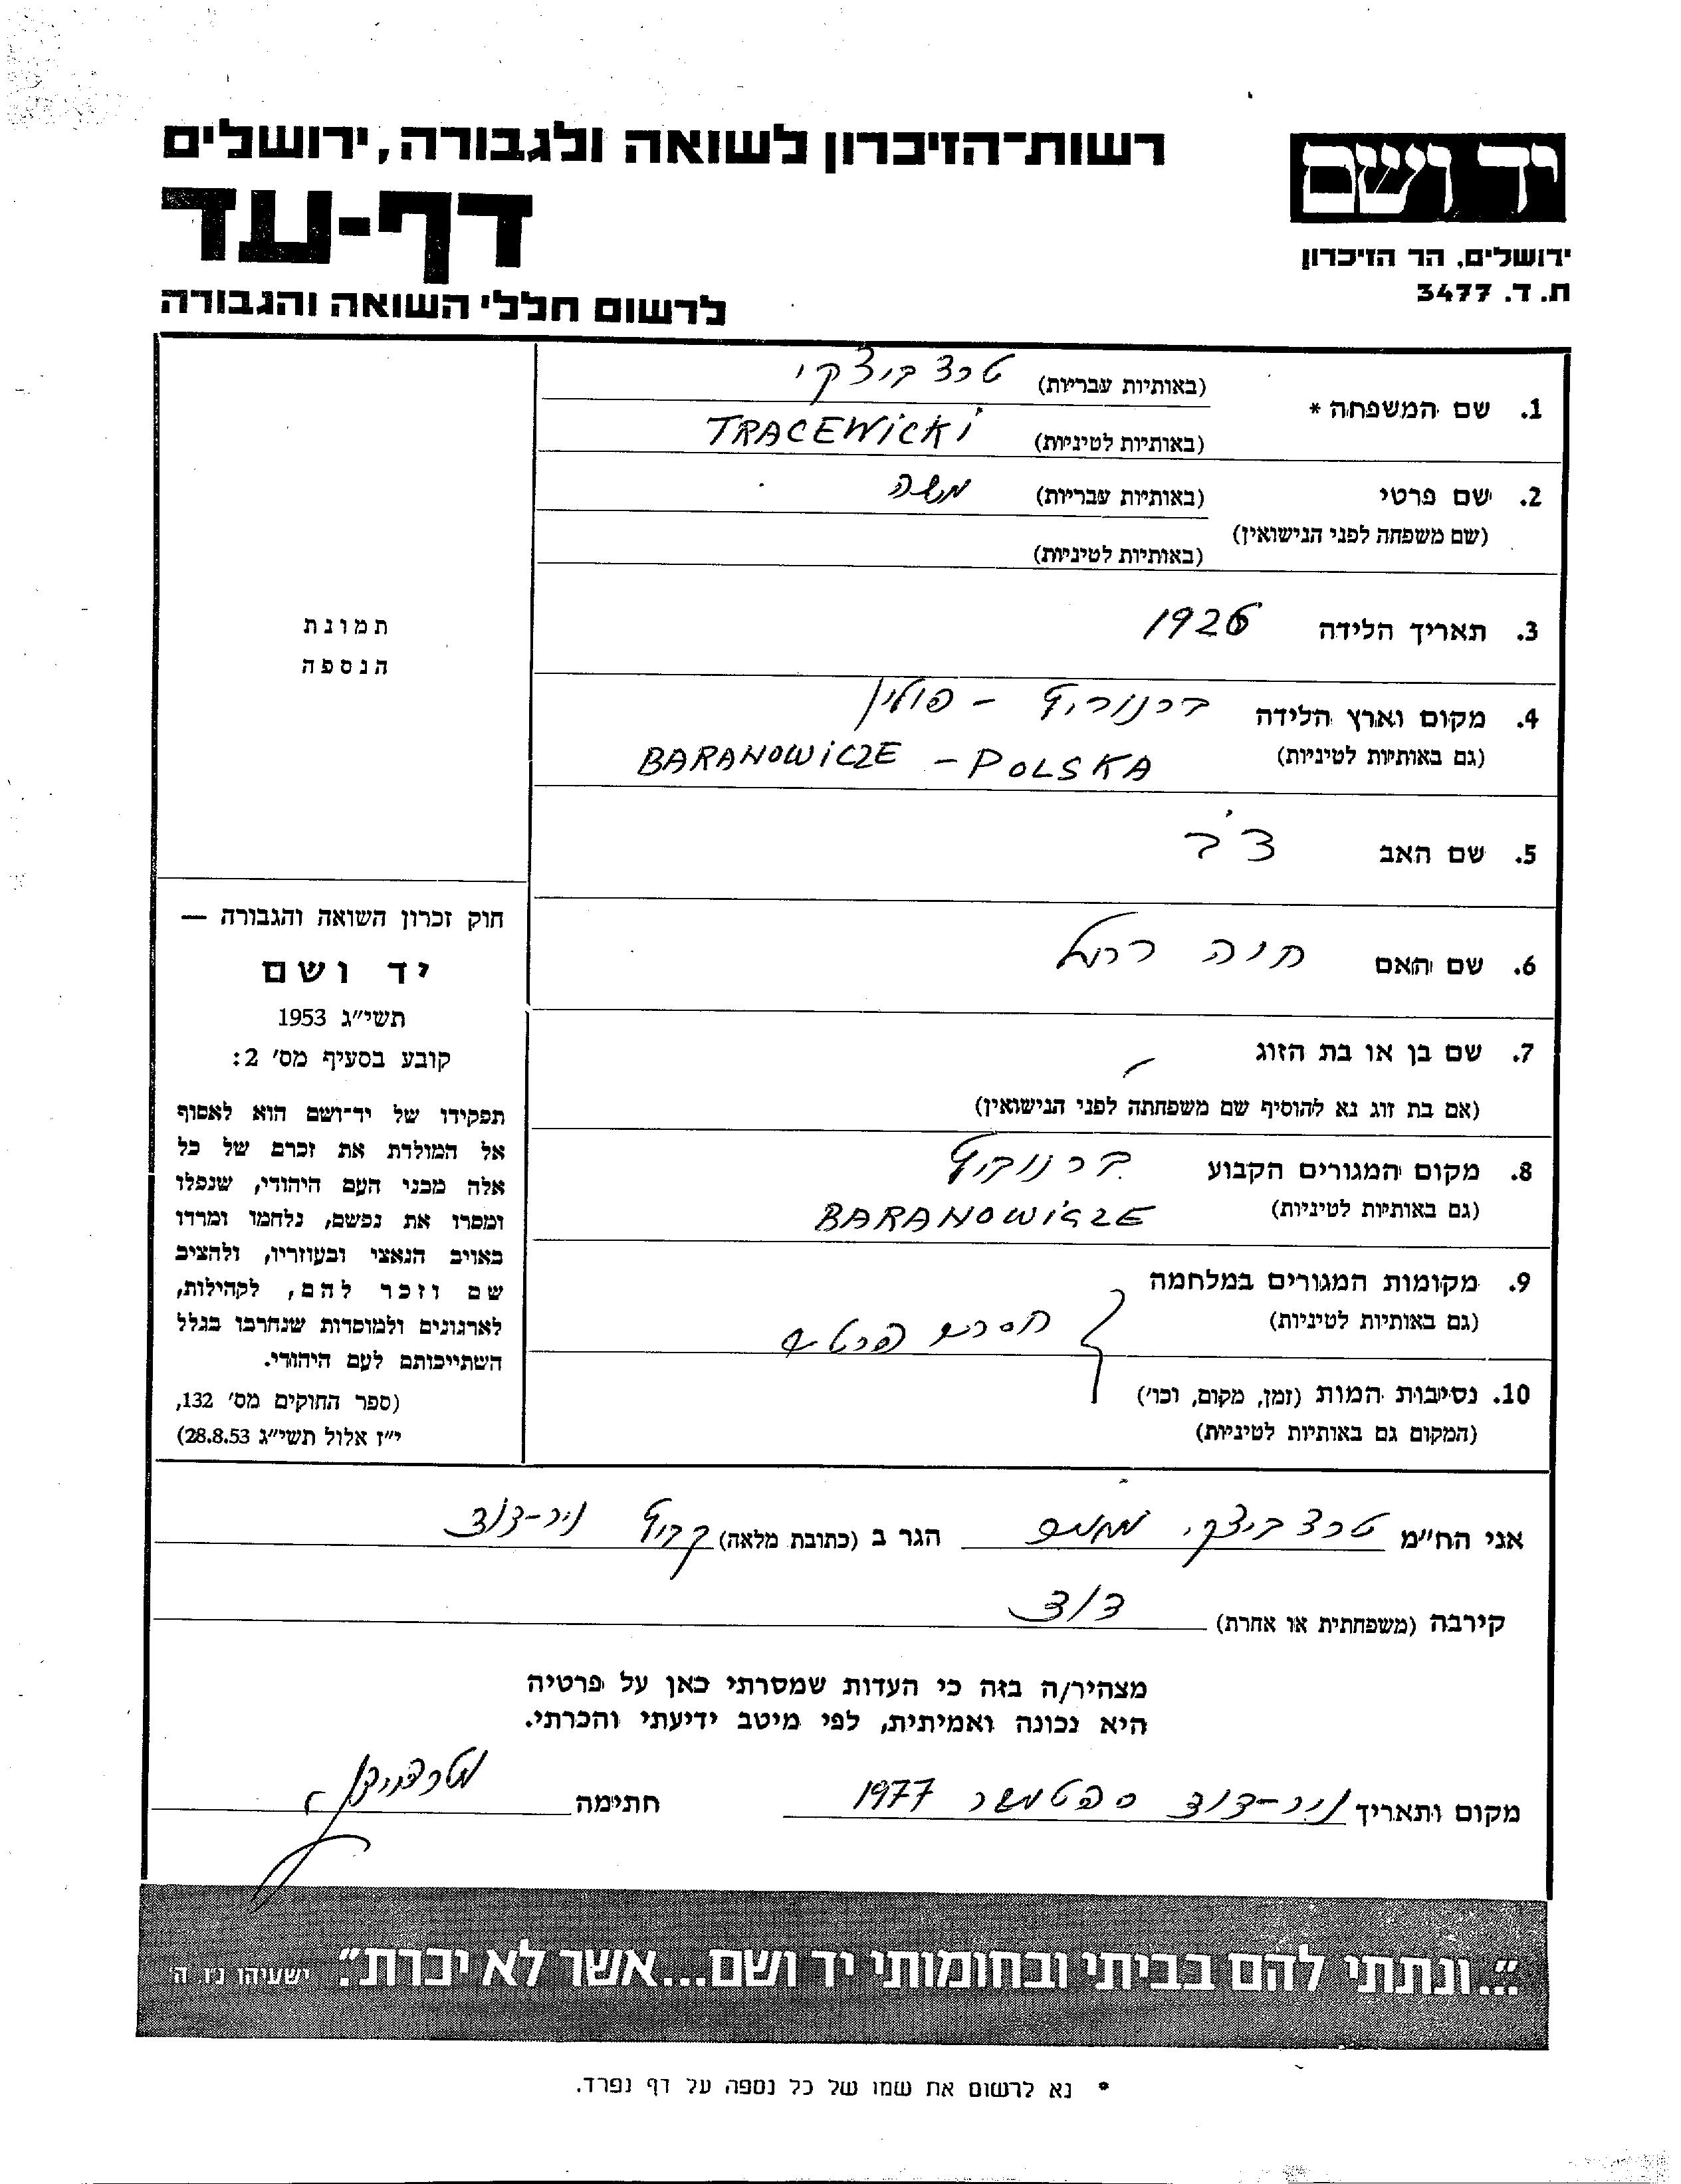 יד ושם
ירושלים, הר הזיכרון
ת. ד. 3477
רשות־הזיכרון לשואה ולגבורה, ירושלים
דף-עד
לרשום חללי השואה והגבורה
1. שם המשפחה *
(באותיות עבריות) טרצביצקי
(באותיות לטיניות) TRACEWICKI
2. שם פרטי (באותיות עבריות) משה
(שם משפחה לפני הנישואין)
(באותיות לטיניות)
3. תאריך הלידה 1926
4. מקום וארץ הלידה ברנוביץ - פולין
(גם באותיות לטיניות) BARANOWICZE - POLSKA
5. שם האב
6. שם האם חוה רחל
7. שם בן או בת הזוג
(אם בת זוג נא להוסיף שם משפחתה לפני הנישואין)
8. מקום המגורים הקבוע ברנוביץ
(גם באותיות לטיניות) BARANOWICZE
9. מקומות המגורים במלחמה
(גם באותיות לטיניות) חסרים פרטים
10. נסיבות המות (זמן, מקום, וכו')
(המקום גם באותיות לטיניות)
תמונת
הנספה
חוק זכרון השואה והגבורה —
יד ושם
תשי"ג 1953
קובע בסעיף מס' 2:
תפקידו של יד־ושם הוא לאסוף
אל המולדת את זכרם של כל
אלה מבני העם היהודי, שנפלו
ומסרו את נפשם, נלחמו ומרדו
באויב הנאצי ובעוזריו, ולהציב
שם וזכר להם, לקהילות,
לארגונים ולמוסדות שנחרבו בגלל
השתייכותם לעם היהודי.
(ספר החוקים מס' 132,
י"ז אלול תשי"ג 28.8.53)
אני הח"מ טרצביצקי הגר ב (כתובת מלאה) קבוץ ניר-דוד
קירבה (משפחתית או אחרת) דוד
מצהיר/ה בזה כי העדות שמסרתי כאן על פרטיה
היא נכונה ואמיתית, לפי מיטב ידיעתי והכרתי.
מקום ותאריך ניר-דוד ספטמבר 1977 חתימה
"...ונתתי להם בביתי ובחומותי יד ושם...אשר לא יכרת". ישעיהו נ"ו, ה'
* נא לרשום את שמו של כל נספה על דף נפרד.